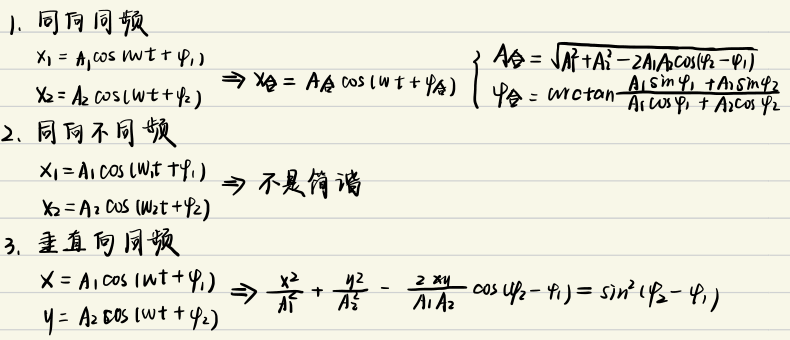 1. 同向同频
x₁ = A₁cos(wt+φ₁)
x₂ = A₂cos(wt+φ₂)
⇒ x合 = A合 cos(wt+φ合) { A合 = √(A₁²+A₂²-2A₁A₂cos(φ₂-φ₁))
φ合 = arctan (A₁sinφ₁+A₂sinφ₂)/(A₁cosφ₁+A₂cosφ₂)
2. 同向不同频
x₁ = A₁cos(w₁t+φ₁)
x₂ = A₂cos(w₂t+φ₂)
⇒ 不是简谐
3. 垂直向同频
x = A₁cos(wt+φ₁)
y = A₂cos(wt+φ₂)
⇒ x²/A₁² + y²/A₂² - 2xy/A₁A₂ cos(φ₂-φ₁) = sin²(φ₂-φ₁)